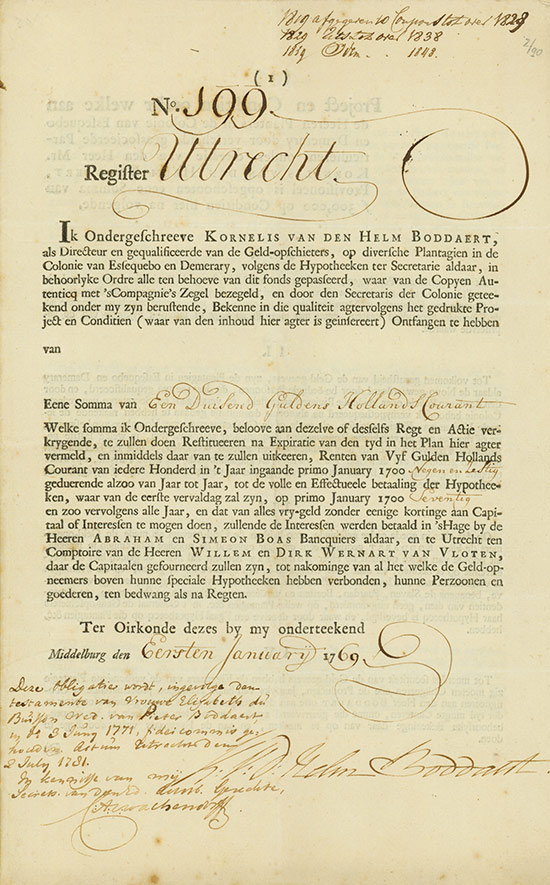 1819 afgegeven 10 Coupons tot over 1829
1829 tot over 1838
1839 1848.
2/90
( 1 )
No. 199.
Regiſter Utrecht.
Ik Ondergeſchreeve KORNELIS VAN DEN HELM BODDAERT,
als Directeur en gequalificeerde van de Geld-opſchieters, op diverſche Plantagien in de
Colonie van Eſſequebo en Demerary, volgens de Hypotheeken ter Secretarie aldaar, in
behoorlyke Ordre alle ten behoeve van dit fonds gepaſſeerd, waar van de Copyen Au-
tenticq met 'sCompagnie's Zegel bezegeld, en door den Secretaris der Colonie getee-
kend onder my zyn beruſtende, Bekenne in die qualiteit agtervolgens het gedrukte Pro-
ject en Conditien ( waar van den inhoud hier agter is geinſereert ) Ontfangen te hebben
van
Eene Somma van Een Duisend Guldens Hollands Courant
Welke ſomma ik Ondergeſchreeve, beloove aan dezelve of desſelfs Regt en Actie ver-
krygende, te zullen doen Reſtitueeren na Expiratie van den tyd in het Plan hier agter
vermeld, en inmiddels daar van te zullen uitkeeren, Renten van Vyf Gulden Hollands
Courant van iedere Honderd in 't Jaar ingaande primo January 1700 Negen en Sestig
geduerende alzoo van Jaar tot Jaar, tot de volle en Effectueele betaaling der Hypothee-
ken, waar van de eerſte vervaldag zal zyn, op primo January 1700 Seventig
en zoo vervolgens alle Jaar, en dat van alles vry-geld zonder eenige kortinge aan Capi-
taal of Intereſſen te mogen doen, zullende de Intereſſen werden betaald in 'sHage by de
Heeren ABRAHAM en SIMEON BOAS Bancquiers aldaar, en te Utrecht ten
Comptoire van de Heeren WILLEM en DIRK WERNART VAN VLOTEN,
daar de Capitaalen gefourneerd zullen zyn, tot nakominge van al het welke de Geld-op-
neemers boven hunne ſpeciale Hypotheeken hebben verbonden, hunne Perzoonen en
goederen, ten bedwang als na Regten.
Ter Oirkonde dezes by my onderteekend
Middelburg den Eersten January 1769.
Deze obligatie wordt, ingevolge den
testamente van Vrouwe Elisabeth du
Buisson wed. van Pieter Boddaert
3 Juny 1771, fidei commis ge-
houden. Actum Utrecht den
2 July 1781.
In kennisse van mij
Secrets. Gerechte,
v. D. Helm Boddaert.